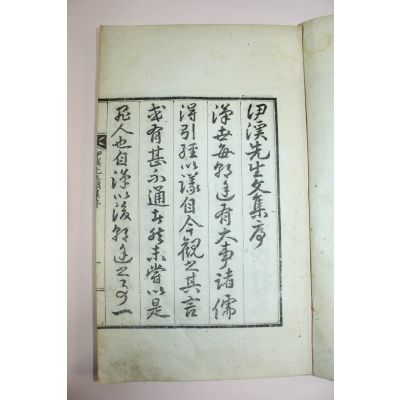 伊溪先生文集序
漢世每朝廷有大事諸儒
得引經以議自今觀之其言
或有甚不通者然未嘗以是
非人也自漢以後朝廷之事一